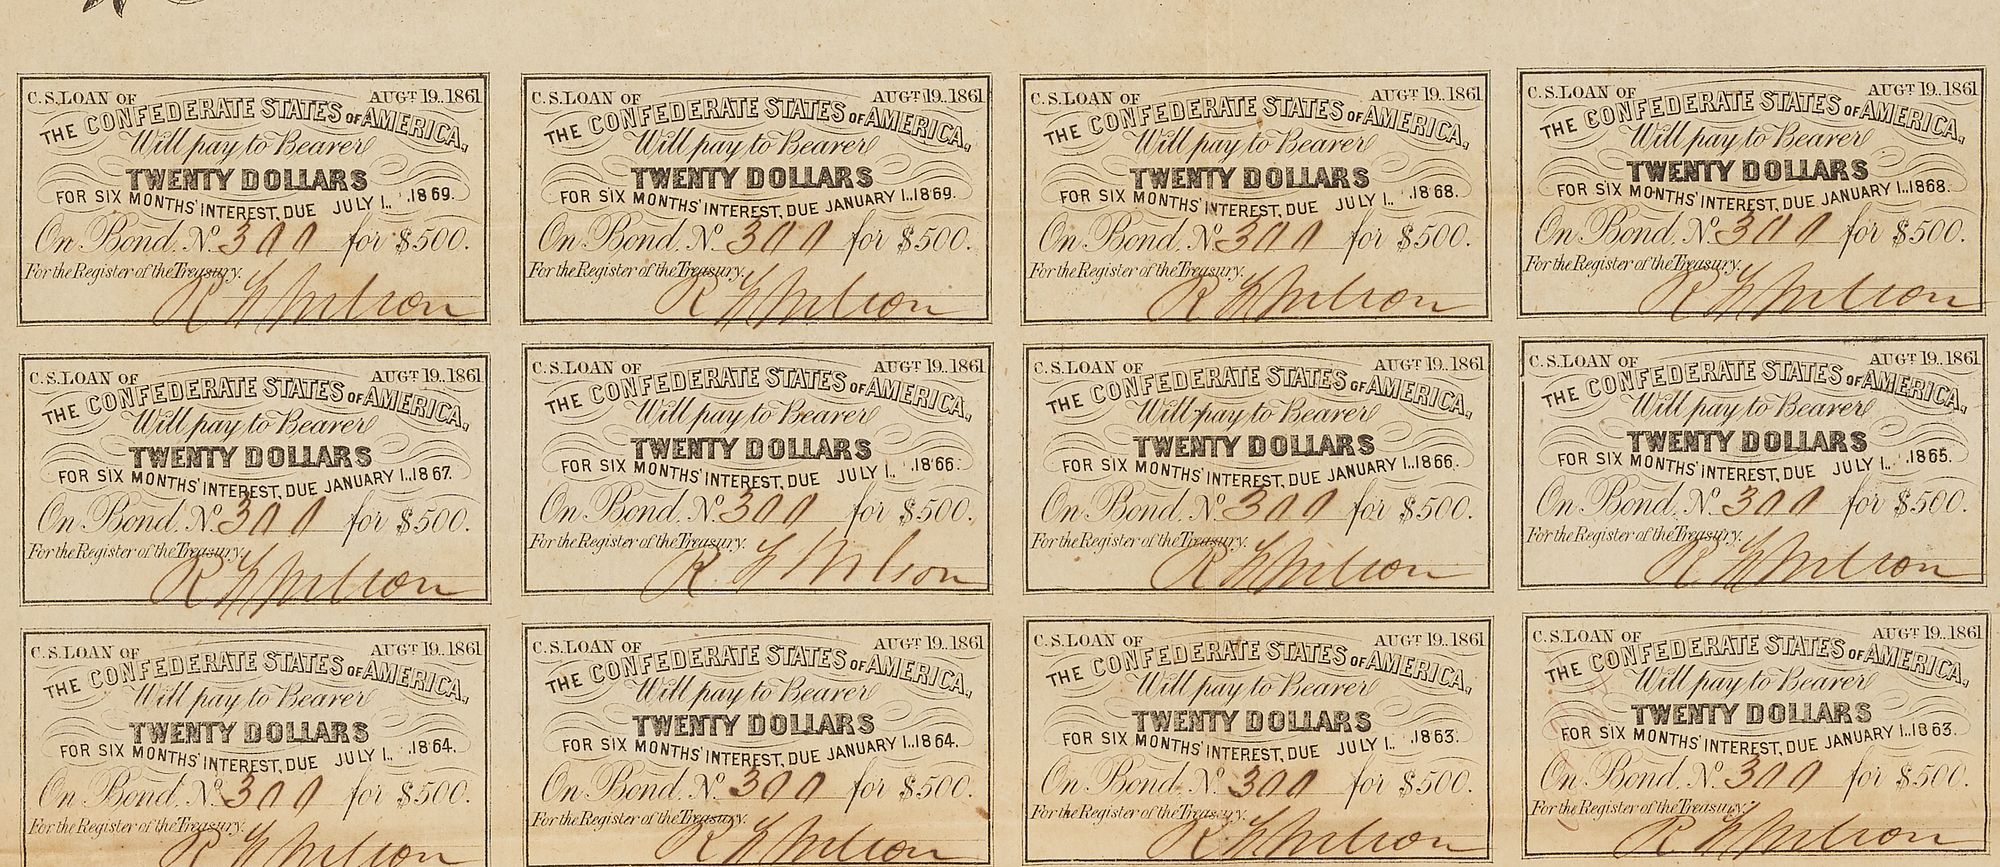 C.S. LOAN OF AUGT 19.. 1861
THE CONFEDERATE STATES OF AMERICA,
Will pay to Bearer
TWENTY DOLLARS
FOR SIX MONTHS' INTEREST, DUE JULY 1.. 1869.
On Bond. No. 300 for $500.
For the Register of the Treasury.
C.S. LOAN OF AUGT 19.. 1861
THE CONFEDERATE STATES OF AMERICA,
Will pay to Bearer
TWENTY DOLLARS
FOR SIX MONTHS' INTEREST, DUE JANUARY 1.. 1869.
On Bond. No. 300 for $500.
For the Register of the Treasury.
C.S. LOAN OF AUGT 19.. 1861
THE CONFEDERATE STATES OF AMERICA,
Will pay to Bearer
TWENTY DOLLARS
FOR SIX MONTHS' INTEREST, DUE JULY 1.. 1868.
On Bond. No. 300 for $500.
For the Register of the Treasury.
C.S. LOAN OF AUGT 19.. 1861
THE CONFEDERATE STATES OF AMERICA,
Will pay to Bearer
TWENTY DOLLARS
FOR SIX MONTHS' INTEREST, DUE JANUARY 1.. 1868.
On Bond. No. 300 for $500.
For the Register of the Treasury.
C.S. LOAN OF AUGT 19.. 1861
THE CONFEDERATE STATES OF AMERICA,
Will pay to Bearer
TWENTY DOLLARS
FOR SIX MONTHS' INTEREST, DUE JANUARY 1.. 1867.
On Bond. No. 300 for $500.
For the Register of the Treasury.
C.S. LOAN OF AUGT 19.. 1861
THE CONFEDERATE STATES OF AMERICA,
Will pay to Bearer
TWENTY DOLLARS
FOR SIX MONTHS' INTEREST, DUE JULY 1.. 1866.
On Bond. No. 300 for $500.
For the Register of the Treasury.
C.S. LOAN OF AUGT 19.. 1861
THE CONFEDERATE STATES OF AMERICA,
Will pay to Bearer
TWENTY DOLLARS
FOR SIX MONTHS' INTEREST, DUE JANUARY 1.. 1866.
On Bond. No. 300 for $500.
For the Register of the Treasury.
C.S. LOAN OF AUGT 19.. 1861
THE CONFEDERATE STATES OF AMERICA,
Will pay to Bearer
TWENTY DOLLARS
FOR SIX MONTHS' INTEREST, DUE JULY 1.. 1865.
On Bond. No. 300 for $500.
For the Register of the Treasury.
C.S. LOAN OF AUGT 19.. 1861
THE CONFEDERATE STATES OF AMERICA,
Will pay to Bearer
TWENTY DOLLARS
FOR SIX MONTHS' INTEREST, DUE JULY 1.. 1864.
On Bond. No. 300 for $500.
For the Register of the Treasury.
C.S. LOAN OF AUGT 19.. 1861
THE CONFEDERATE STATES OF AMERICA,
Will pay to Bearer
TWENTY DOLLARS
FOR SIX MONTHS' INTEREST, DUE JANUARY 1.. 1864.
On Bond. No. 300 for $500.
For the Register of the Treasury.
C.S. LOAN OF AUGT 19.. 1861
THE CONFEDERATE STATES OF AMERICA,
Will pay to Bearer
TWENTY DOLLARS
FOR SIX MONTHS' INTEREST, DUE JULY 1.. 1863.
On Bond. No. 300 for $500.
For the Register of the Treasury.
C.S. LOAN OF AUGT 19.. 1861
THE CONFEDERATE STATES OF AMERICA,
Will pay to Bearer
TWENTY DOLLARS
FOR SIX MONTHS' INTEREST, DUE JANUARY 1.. 1863.
On Bond. No. 300 for $500.
For the Register of the Treasury.